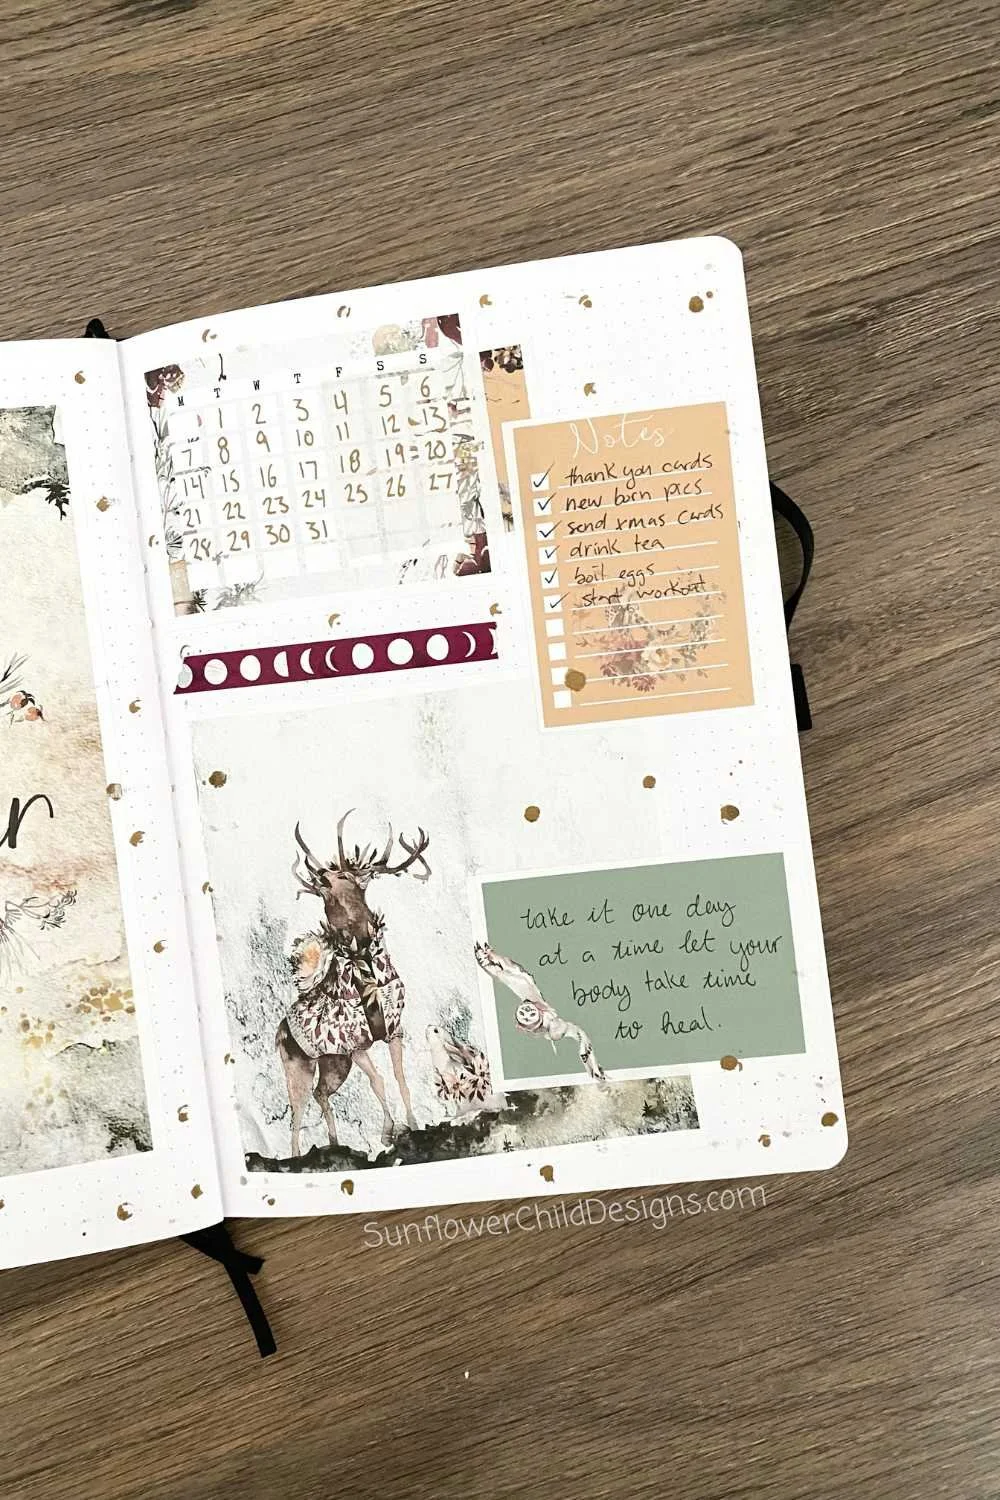 r
M T W T F S S
1 2 3 4 5 6
7 8 9 10 11 12 13
14 15 16 17 18 19 20
21 22 23 24 25 26 27
28 29 30 31
Notes
thank you cards
new born pics
send xmas cards
drink tea
boil eggs
start workout
take it one day
at a time let your
body take time
to heal.
SunflowerChildDesigns.com